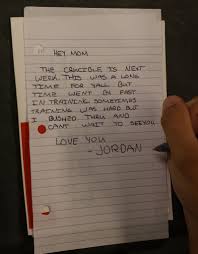 HEY MOM
THE CRUCIBLE IS NEXT
WEEK. THIS WAS A LONG
TIME FOR YALL BUT
TIME WENT BY FAST
IN TRAINING SOMETIMES
TRAINING WAS HARD BUT
I PUSHED THRU AND
CANT WAIT TO SEE YOU
LOVE YOU
-JORDAN